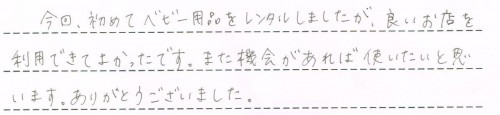 今回、初めてベビー用品をレンタルしましたが、良いお店を
利用できてよかったです。また機会があれば使いたいと思
います。ありがとうございました。